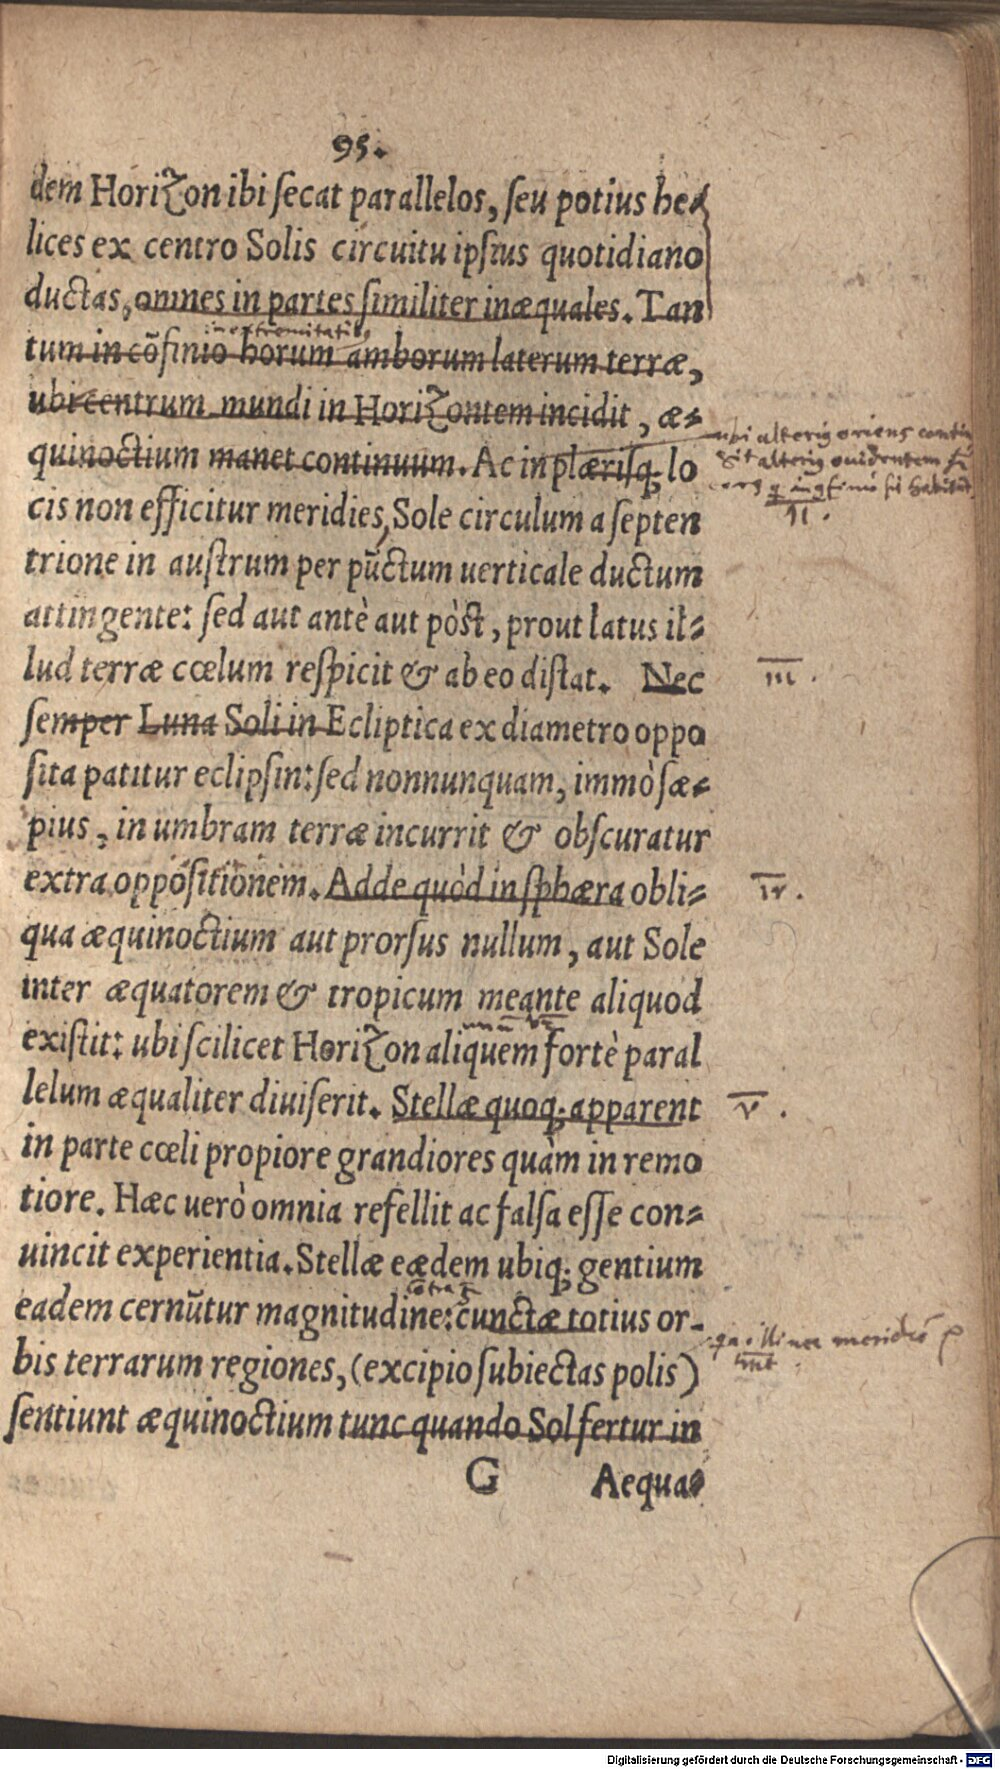 95.
dem Horizon ibi secat parallelos, seu potius he-
lices ex centro Solis circuitu ipsius quotidiano
ductas, omnes in partes similiter inæquales. Tan
in extremitatib9
tum in cõfinio horum amborum laterum terræ,
ubi centrum mundi in Horizontem incidit, æ-
quinoctium manet continuum. Ac in plærisq; lo
ubi alteri9 oriens
sit alteri9
II.
cis non efficitur meridies, Sole circulum a septen
trione in austrum per pũctum uerticale ductum
attingente: sed aut antè aut pòst, prout latus il-
lud terræ cœlum respicit & ab eo distat. Nec
III.
semper Luna Soli in Ecliptica ex diametro oppo
sita patitur eclipsin: sed nonnunquam, immò sæ-
pius, in umbram terræ incurrit & obscuratur
extra oppositionem. Adde quòd in sphæra obli-
IV.
qua æquinoctium aut prorsus nullum, aut Sole
inter æquatorem & tropicum meante aliquod
existit: ubi scilicet Horizon aliquem fortè paral
lelum æqualiter diuiserit. Stellæ quoq; apparent
V.
in parte cœli propiore grandiores quàm in remo
tiore. Hæc uerò omnia refellit ac falsa esse con-
uincit experientia. Stellæ eædem ubiq; gentium
eadem cernũtur magnitudine: cunctæ totius or-
meridiē
bis terrarum regiones, (excipio subiectas polis)
sentiunt æquinoctium tunc quando Sol fertur in
G Aequa-
Digitalisierung gefördert durch die Deutsche Forschungsgemeinschaft - DFG